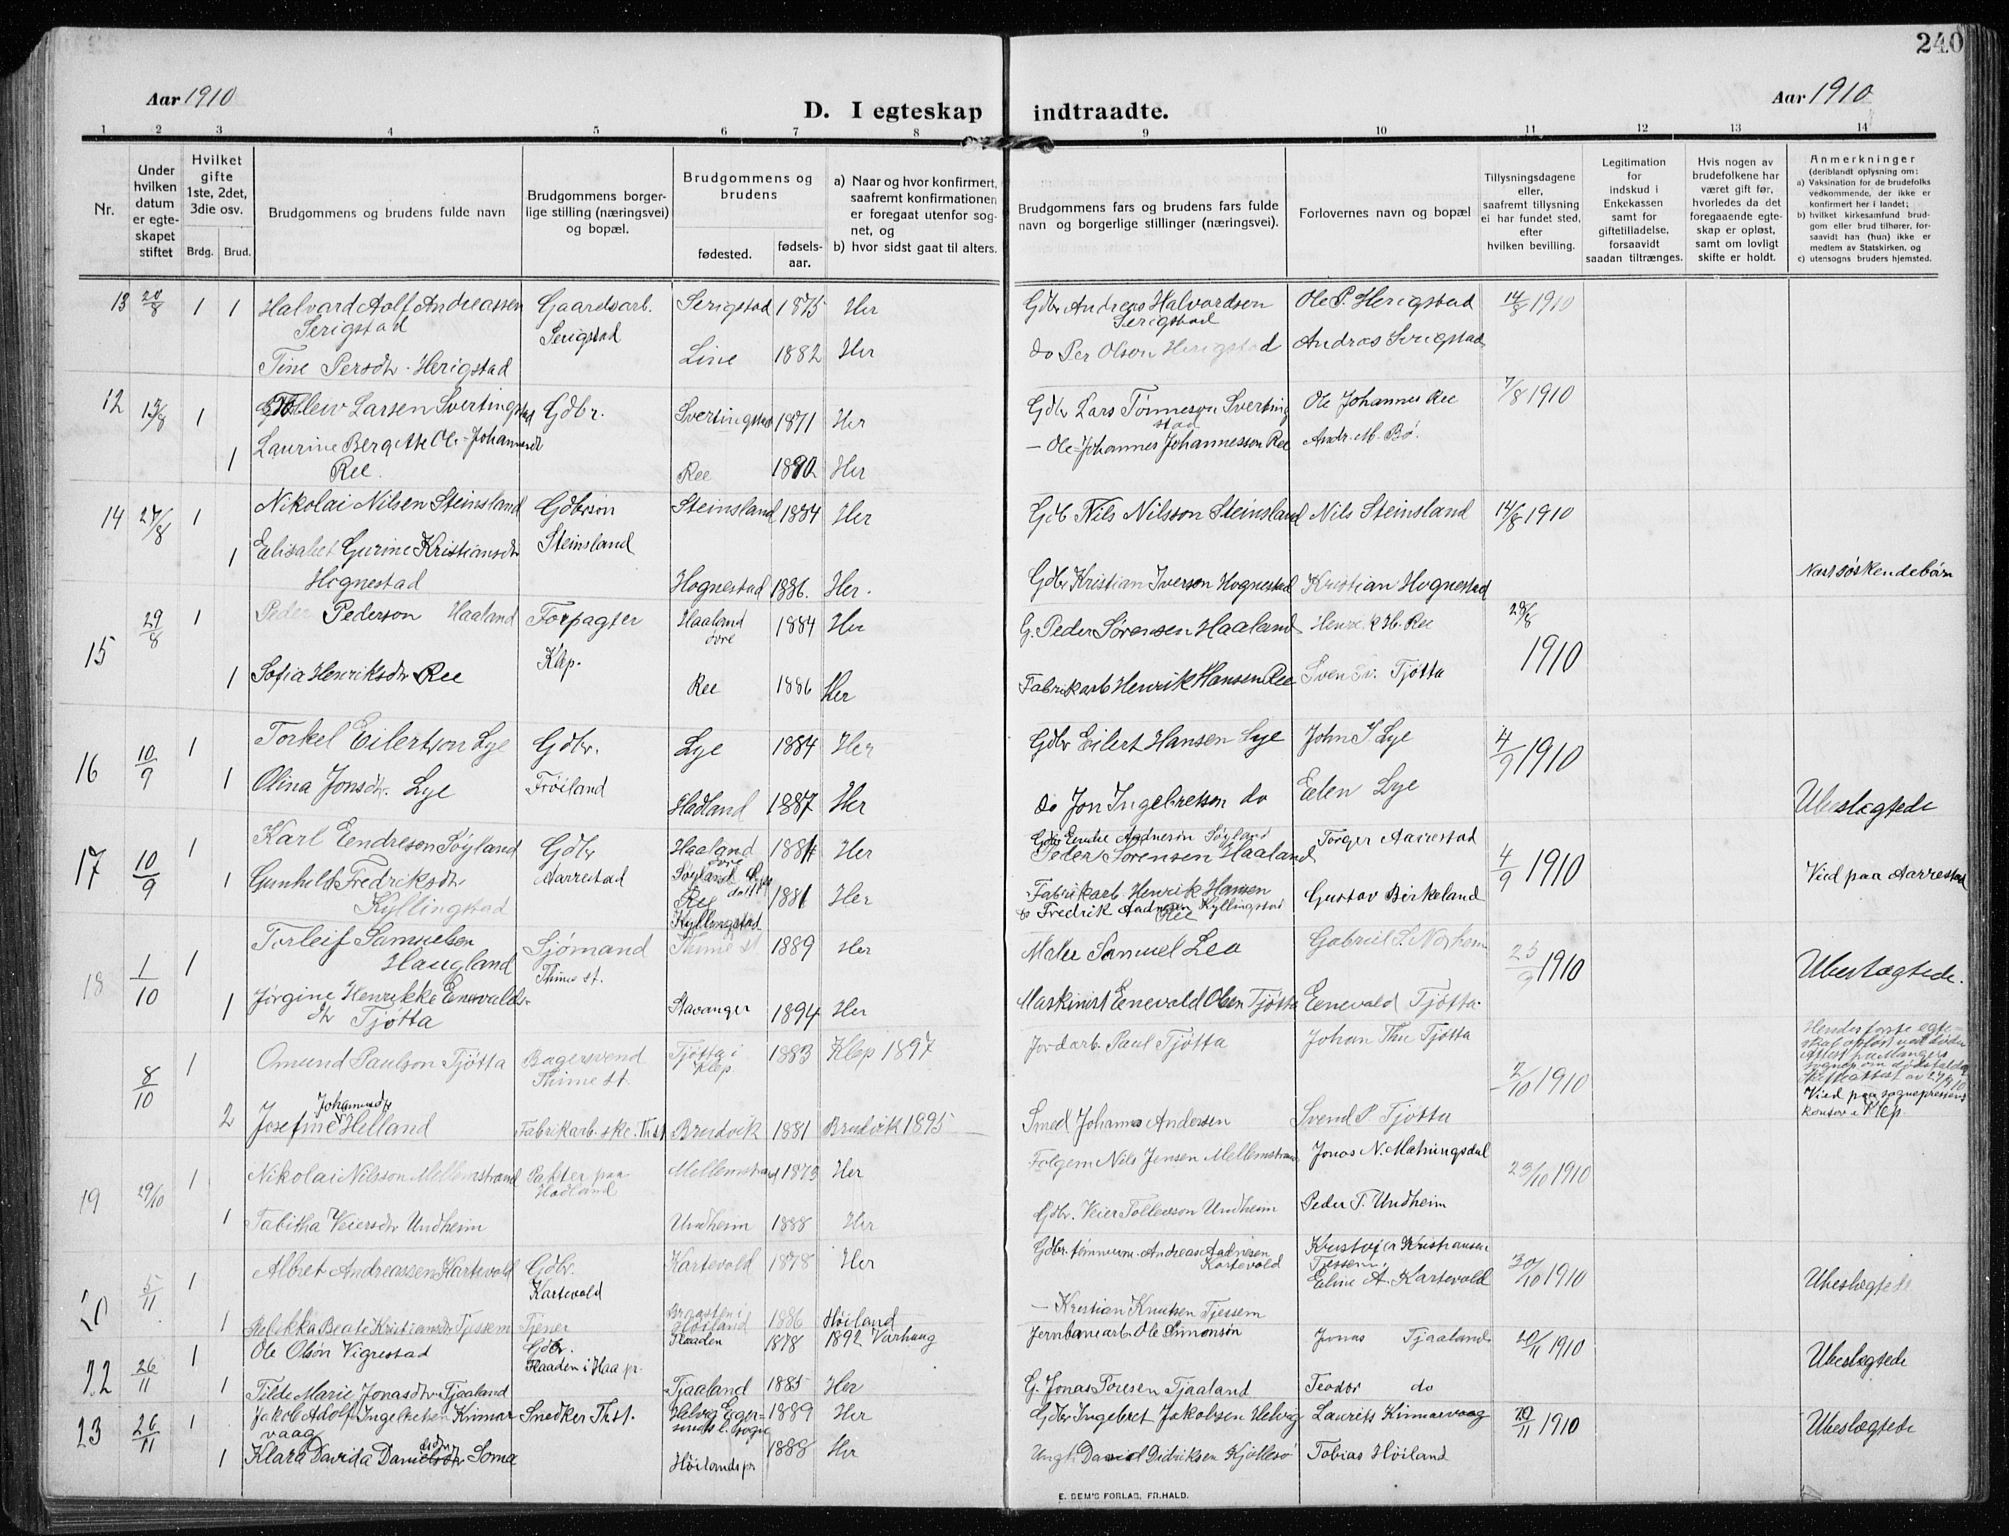 240
Aar 1910
D. I egteskap indtraadte.
Aar 1910
1 2 3 4 5 6 7 8 9 10 11 12 13 14
Nr.
Under hvilken datum er egteskapet stiftet
Hvilket gifte 1ste, 2det, 3die osv.
Brdg. Brud.
Brudgommens og brudens fulde navn
Brudgommens borgerlige stilling (næringsvei) og bopæl.
Brudgommens og brudens
fødested.
fødselsaar.
a) Naar og hvor konfirmert, saafremt konfirmationen er foregaat utenfor sognet, og
b) hvor sidst gaat til alters.
Brudgommens fars og brudens fars fulde navn og borgerlige stillinger (næringsvei).
Forlovernes navn og bopæl
Tillysningsdagene eller, saafremt tillysning ei har fundet sted, efter hvilken bevilling.
Legitimation for indskud i Enkekassen samt for giftetilladelse, forsaavidt saadan tiltrænges.
Hvis nogen av brudefolkene har været gift før, hvorledes da det foregaaende egteskap er opløst, samt om lovligt skifte er holdt.
Anmerkninger (deriblandt oplysning om: a) Vaksination for de brudefolks vedkommende, der ikke er konfirmert her i landet; b) hvilket kirkesamfund brudgom eller brud tilhører, forsaavidt han (hun) ikke er medlem av Statskirken, og c) utensogns bruders hjemsted.
13 20/8 1 1 Halvard Adolf Andreassen Serigstad Gaardsarb. Serigstad Serigstad 1875 Her Gdbr Andreas Halvordsen Serigstad Ole P. Herigstad 14/8 1910
Tine Persdtr. Herigstad Line 1882 Her do Per Olson Herigstad Andras Serigstad
12 13/8 1 Tollew Larsen Svertingstad Gdbr. Svertingstad 1871 Her Gdbr Lars Tønneson Svertingstad Ole Johannes Ree 7/8 1910
1 Laurine Bergitte Ole-Johannesdt Ree Ree Her – Ole-Johannes Johannesson Ree Andr. M. Bø.
14 27/8 1 Nikolai Nilsen Steinsland Gdbrsøn Steinsland Steinsland 1884 Her Gdb Nils Nilsson Steinsland Nils Steinsland 14/8 1910
1 Elisabet Gurine Kristiansdtr Hognestad Hognestad 1886. Her. Gdbr Kristian Iverson Hognestad Kristian Hognestad Næstsøskendebørn
15 29/8 1 Peder Pederson Haaland Forpagter Klep. Haaland øvre 1884 Her G. Peder Sørensen Haaland Henrik H. Ree 28/8 1910
1 Sofia Henriksdtr Ree Ree 1886 Her Fabrikarb Henrik Hansen Ree Sven Sv. Tjøtta
16 10/9 1 Torkel Eilertson Lye Gdbr. Frøiland Lye 1884 Her Gdbr Eilert Hansen Lye John J. Lye 4/9 1910
1 Olina Jonsdtr. Lye Hadland 1887 Her do Jon Ingebretsen do Eelen Lye Ubeslægtede
17 10/9 1 Karl Eendreson Søyland Gdbr Aarrestad Haaland øvre Søyland 1881 Her Gdbr Eendre Aadnesøn Søyland Peder Sørensen Haaland Torger Aarrestad 4/9 1910
1 Gunhild Fredriksdtr Kyllingstad Ree Kyllingstad 1881 Her Fabrikarb Henrik Hansen Ree Fredrik Aadnesen Kyllingstad Gustav Birkeland Vied paa Aarrestad
18 1/10 1 Torleif Samuelsen Haugland Sjømand Thime st. Thime st. 1889 Her Maler Samuel Lea Gabriel S. Norheim 25/9 1910
1 Jørgine Henrikke Enevaldsdtr Tjøtta Stavanger 1894 Her Maskinist Eenevald Olsen Tjøtta Eenevald Tjøtta. Ubeslægtede.
8/10 1 Omund Paulson Tjøtta Bagersvend Thime st. Tjøtta i Klep 1883 Klep 1897 Jordarb. Paul Tjøtta Johan Th. Tjøtta 2/10 1910 Hendes første egteskab opløst ved døden
Vied paa sogneprestens kontor i Klep.
2 Josefine Johannesdtr Helland Fabrikarb.ske. Thst Bruvik 1881 Bruvik 1895 Smed Johannes Andersen Svend P. Tjøtta
19 29/10 1 Nikolai Nilsson Mellemstrand Pakter paa Hadland Mellemstrand 1873 Her Følgem Nils Jensen Mellemstrand Jonas N. Matningsdal 23/10 1910
1 Tabitha Veiersdtr Undheim Undheim 1888 Her Gdbr. Veier Tollevsson Undheim Peder T. Undheim
20 5/11 1 Albret Andreassen Kartevold Gdbr. Kartevold Kartevold 1878 Her Gdbr. tømmerm. Andreas Aadnesen Kartevold Kristofer Kristiansen Tjessem, Eeline A. Kartevold 30/10 1910 Ubeslægtede
1 Rebekka Beate Kristiansdtr Tjessem Tjener Høiland 1886 Høiland – Kristian Knutsen Tjessem
22 26/11 1 Ole Olsøn Vigrestad Gdbr. Flaaden i Haa pr. Flaaden 1878 1892 Varhaug Jernbanearb Ole Simonsøn Jonas Tjaaland 20/11 1910 Ubeslægtede
1 Tilde Marie Jonasdtr Tjaaland Tjaaland 1885 Her G. Jonas Toresen Tjaaland Teodor do
23 26/11 1 Jakob Adolf Ingebretsen Kinnarvaag Snedker Thst. Helvig Egersunds l. sogn 1889 Her Gdbr Ingebret Jakobsen Helvig Laurits Kinnarvaag 20/11 1910 Ubeslægtede
1 Klara Davida Danielsdtr Soma Høilands pr 1888 Her Ungk David Didriksen Kjøllesø Tobias Høiland
E. SEM'S FORLAG, FR.HALD.